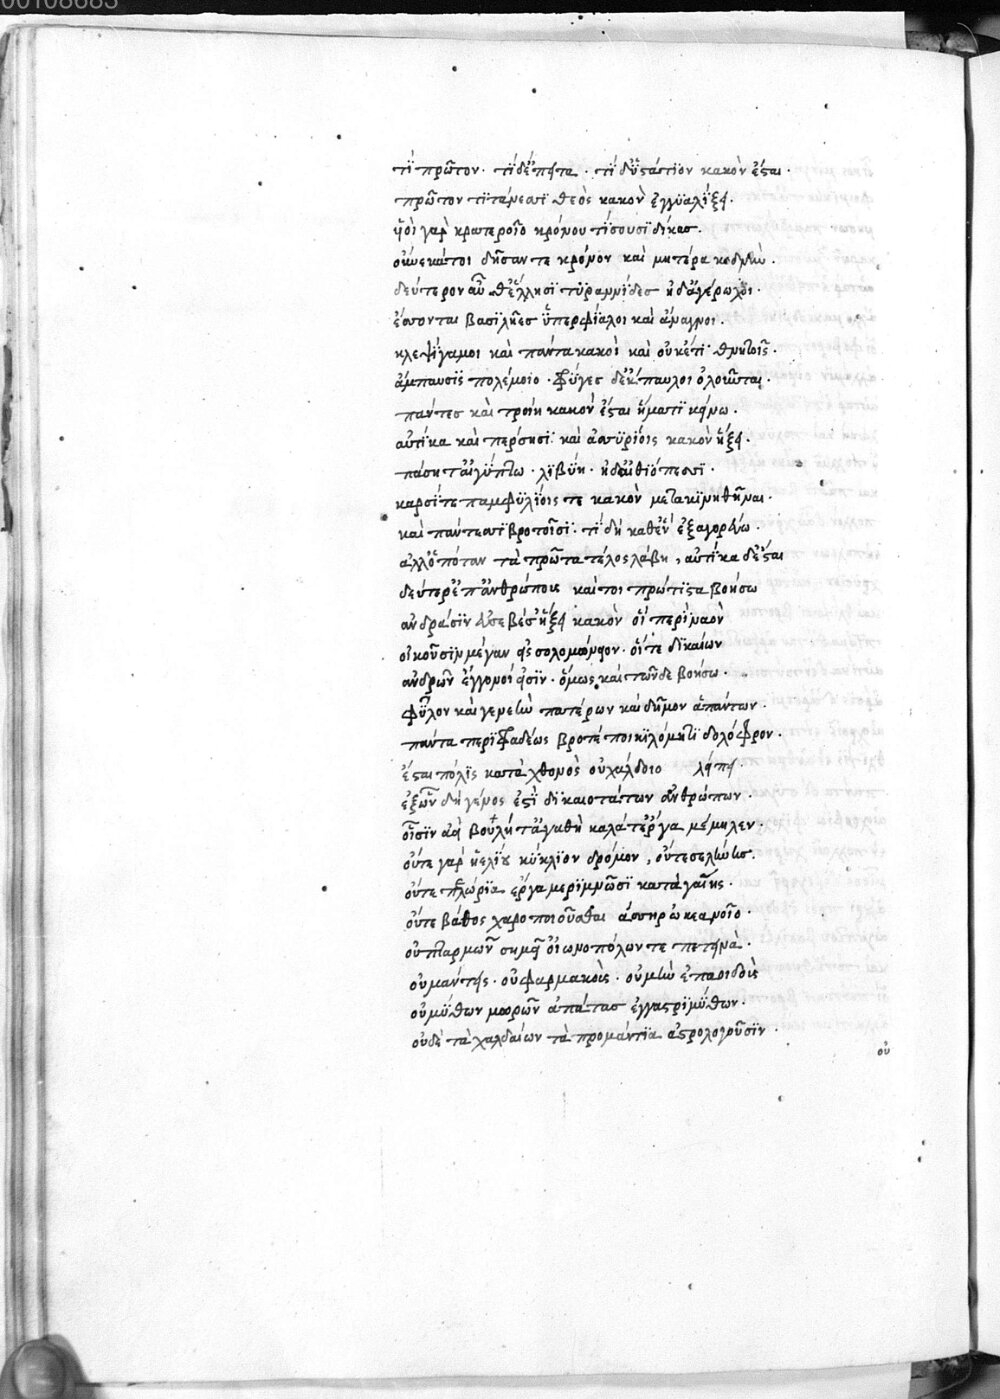 00108683
τί πρῶτον· τί δ' ἔπειτα· τί δ' ὑστάτιον κακὸν ἔσται·
πρῶτον τιτάνεσσι θεὸς κακὸν ἐγγυαλίξει·
υἱοὶ γὰρ κρατεροῖο κρόνου τίσουσι δίκας·
οὕνεκά τοι δῆσαν τε κρόνον καὶ μητέρα κεδνὴν·
δεύτερον αὖ θ' ἕλλησι τυραννίδες ἠδ' ἀγέρωχοι·
ἔσονται βασιλῆες ὑπερφίαλοι καὶ ἄναγνοι·
κλεψίγαμοι καὶ πάντα κακοὶ καὶ οὐκέτι θνητοῖς·
ἄμπαυσις πολέμοιο· φρύγες δ' ἔκπαυλοι ὀλοῦνται·
πάντες καὶ τροίη κακὸν ἔσται ἤματι κείνω·
αὐτίκα καὶ πέρσησι καὶ ἀσσυρίοις κακὸν ἥξει·
πάση τ' αἰγύπτω· λιβύη· ἠδ' αἰθιόπεσσι·
καρσί τε παμφυλίοις τε κακὸν μετακινηθῆναι·
καὶ πάντεσσι βροτοῖσι· τί δὴ καθ' ἓν ἐξαγορεύω·
ἀλλ' ὁπόταν τὰ πρῶτα τέλος λάβη, αὐτίκα δ' ἔσται
δεύτερ' ἐπ' ἀνθρώπους καί τοι πρώτιστα βοήσω
ἀνδράσιν εὐσεβέσ' ἥξει κακὸν οἳ περὶ ναὸν
οἰκοῦσιν μέγαν εἰς σολομώνειον· οἵ τε δικαίων
ἀνδρῶν ἔγγονοί εἰσιν· ὅμως καὶ τῶνδε βοήσω·
φῦλον καὶ γενεὴν πατέρων καὶ δῆμον ἁπάντων·
πάντα περιφραδέως βροτὲ ποικιλόμητι δολόφρον·
ἔσται πόλις κατὰ χθονὸς οὐχάλδοιο λείπει
ἐξ ὧν δὴ γένος ἐστὶ δικαιοτάτων ἀνθρώπων·
οἷσιν ἀεὶ βουλή τ' ἀγαθὴ καλά τ' ἔργα μέμηλεν·
οὔτε γὰρ ἠελίου κύκλιον δρόμον, οὔτε σελήνης·
οὔτε πελώρια ἔργα μεριμνῶσι κατὰ γαίης·
οὔτε βάθος χαροποιοῦ θαλάσσης ὠκεανοῖο·
οὐ πταρμῶν σημεῖ' οἰωνοπόλων τε πετεινὰ·
οὐ μάντεις· οὐ φαρμακοὺς· οὐ μὴν ἐπαοιδοὺς
οὐ μύθων μωρῶν ἀπάτας ἐγγαστριμύθων·
οὐδὲ τὰ χαλδαίων τὰ προμάντια ἀστρολογοῦσιν·
οὐ